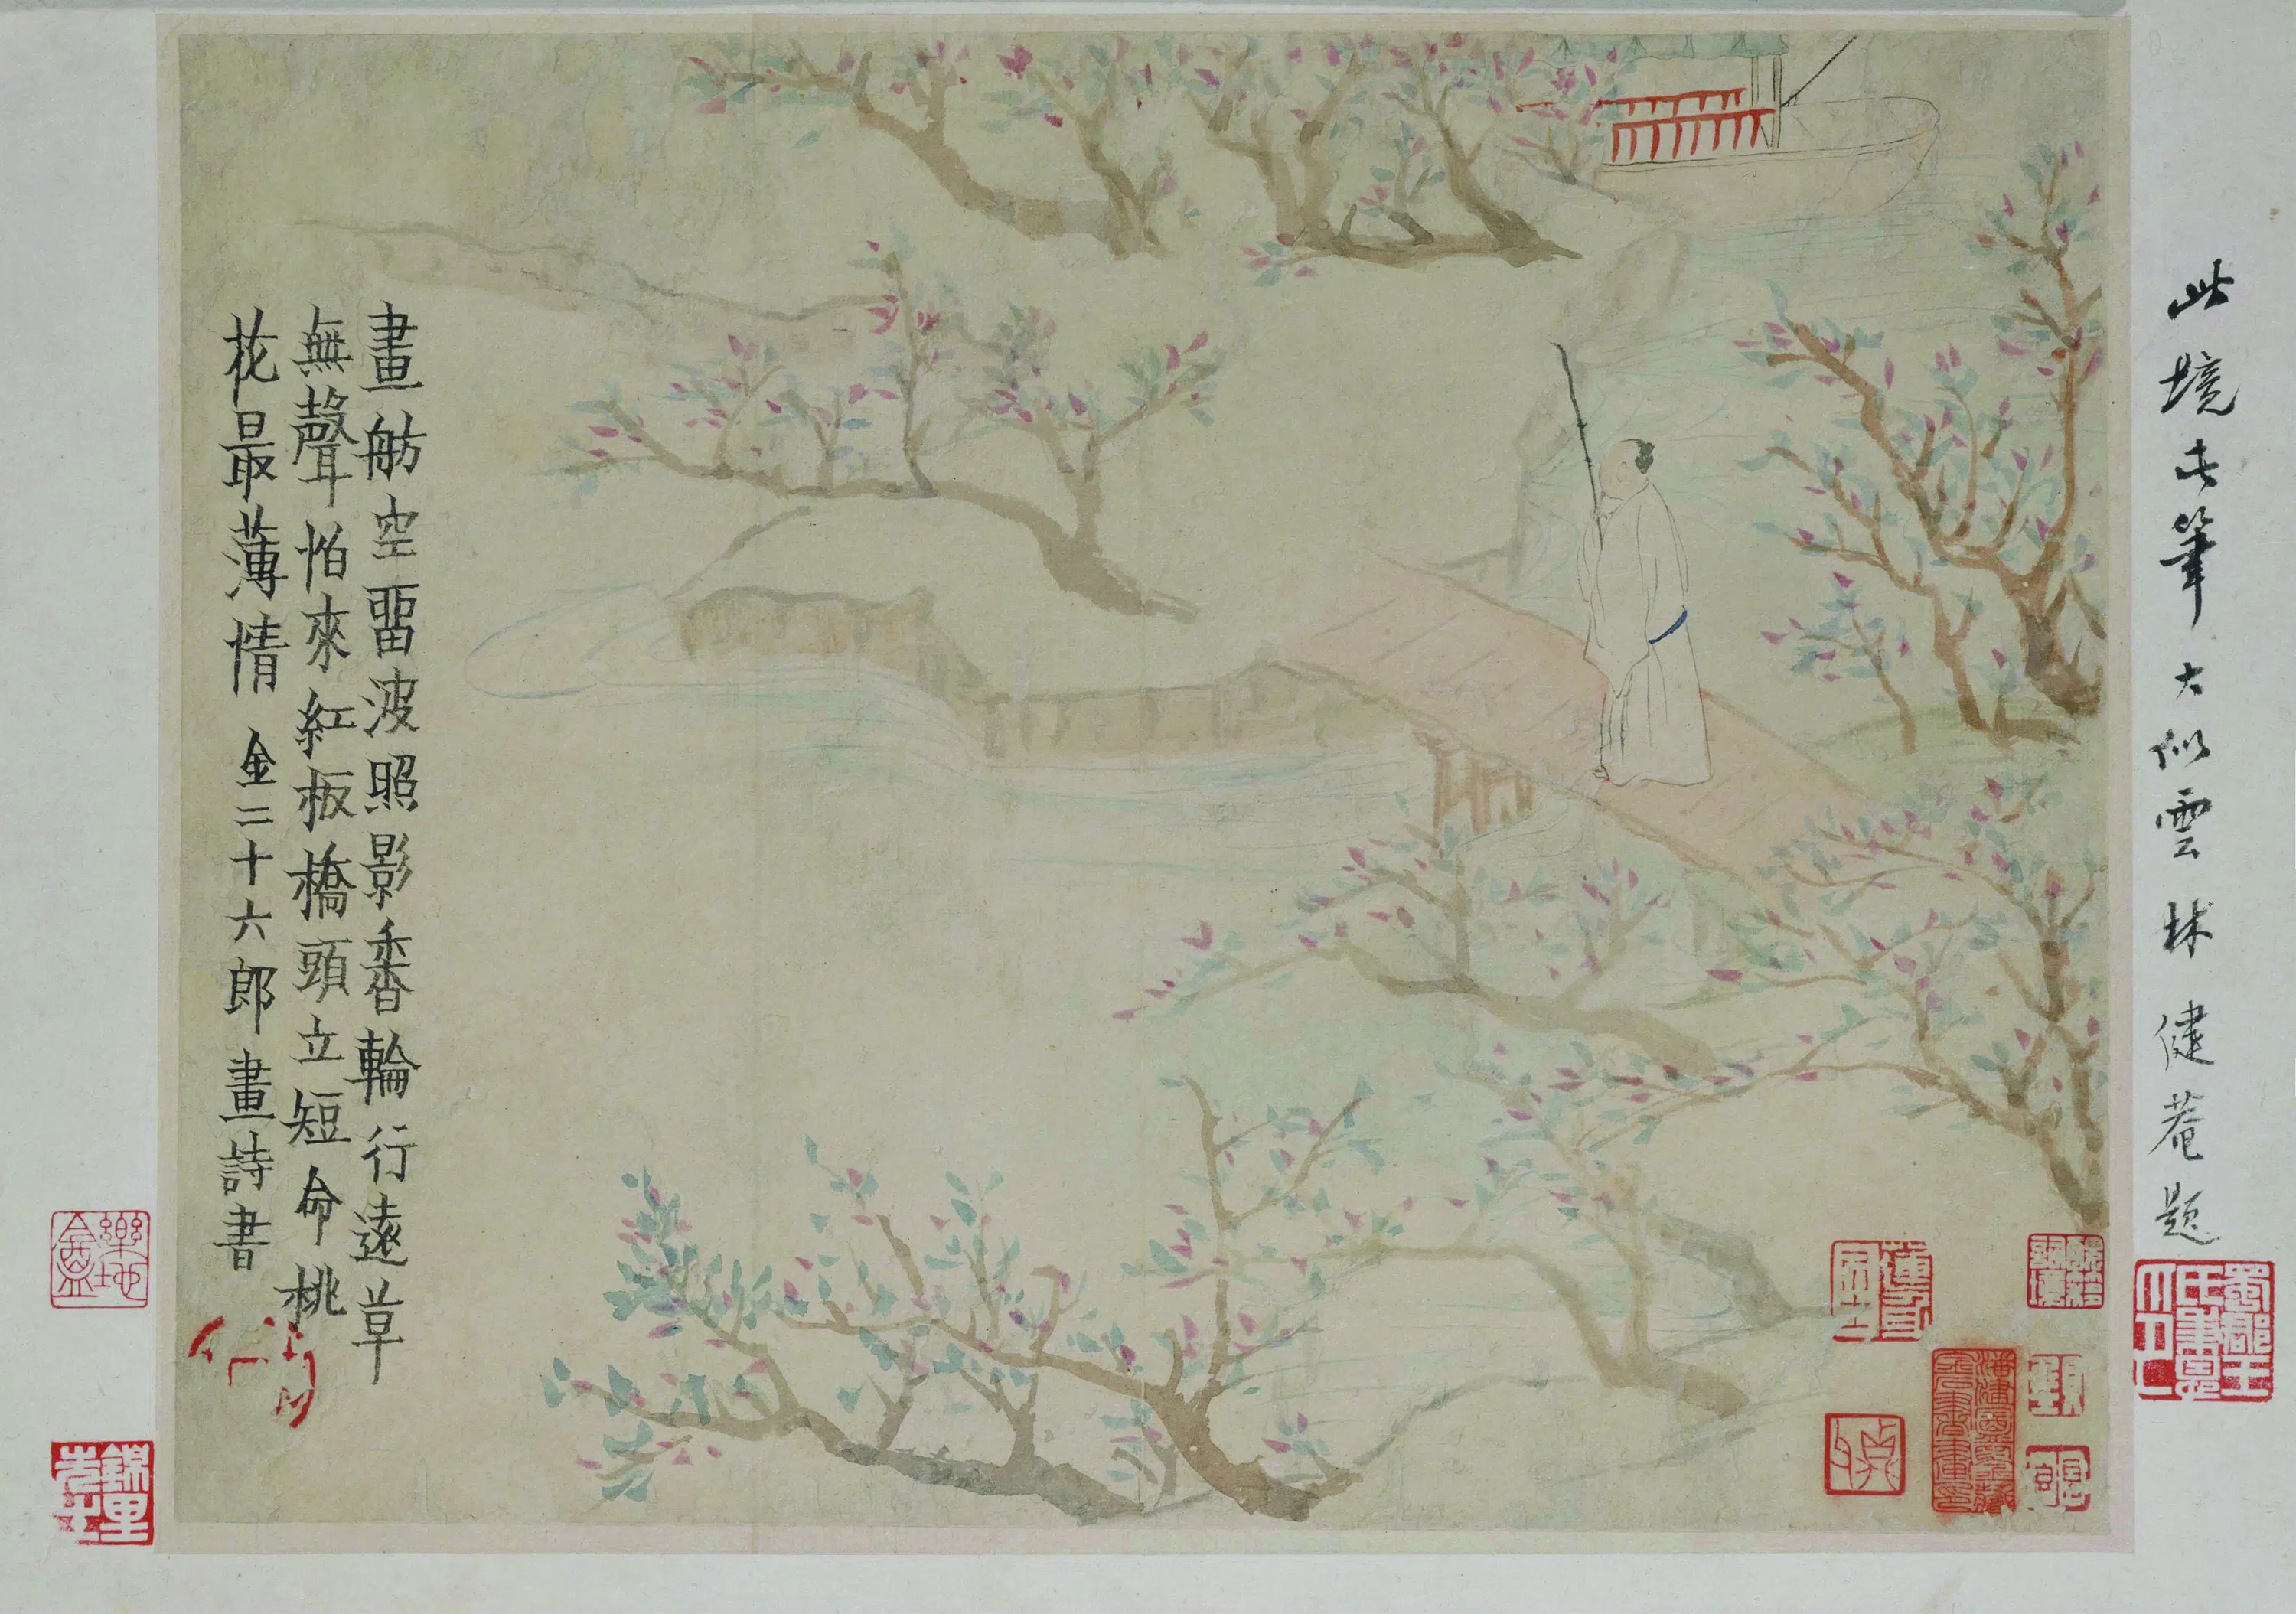 此境此筆大似雲林 健菴題
畫舫空畱波照影香輪行遠草
無聲怕來紅板橋頭立短命桃
花最薄情 金二十六郎畫詩書
樂地盦
錦里先生